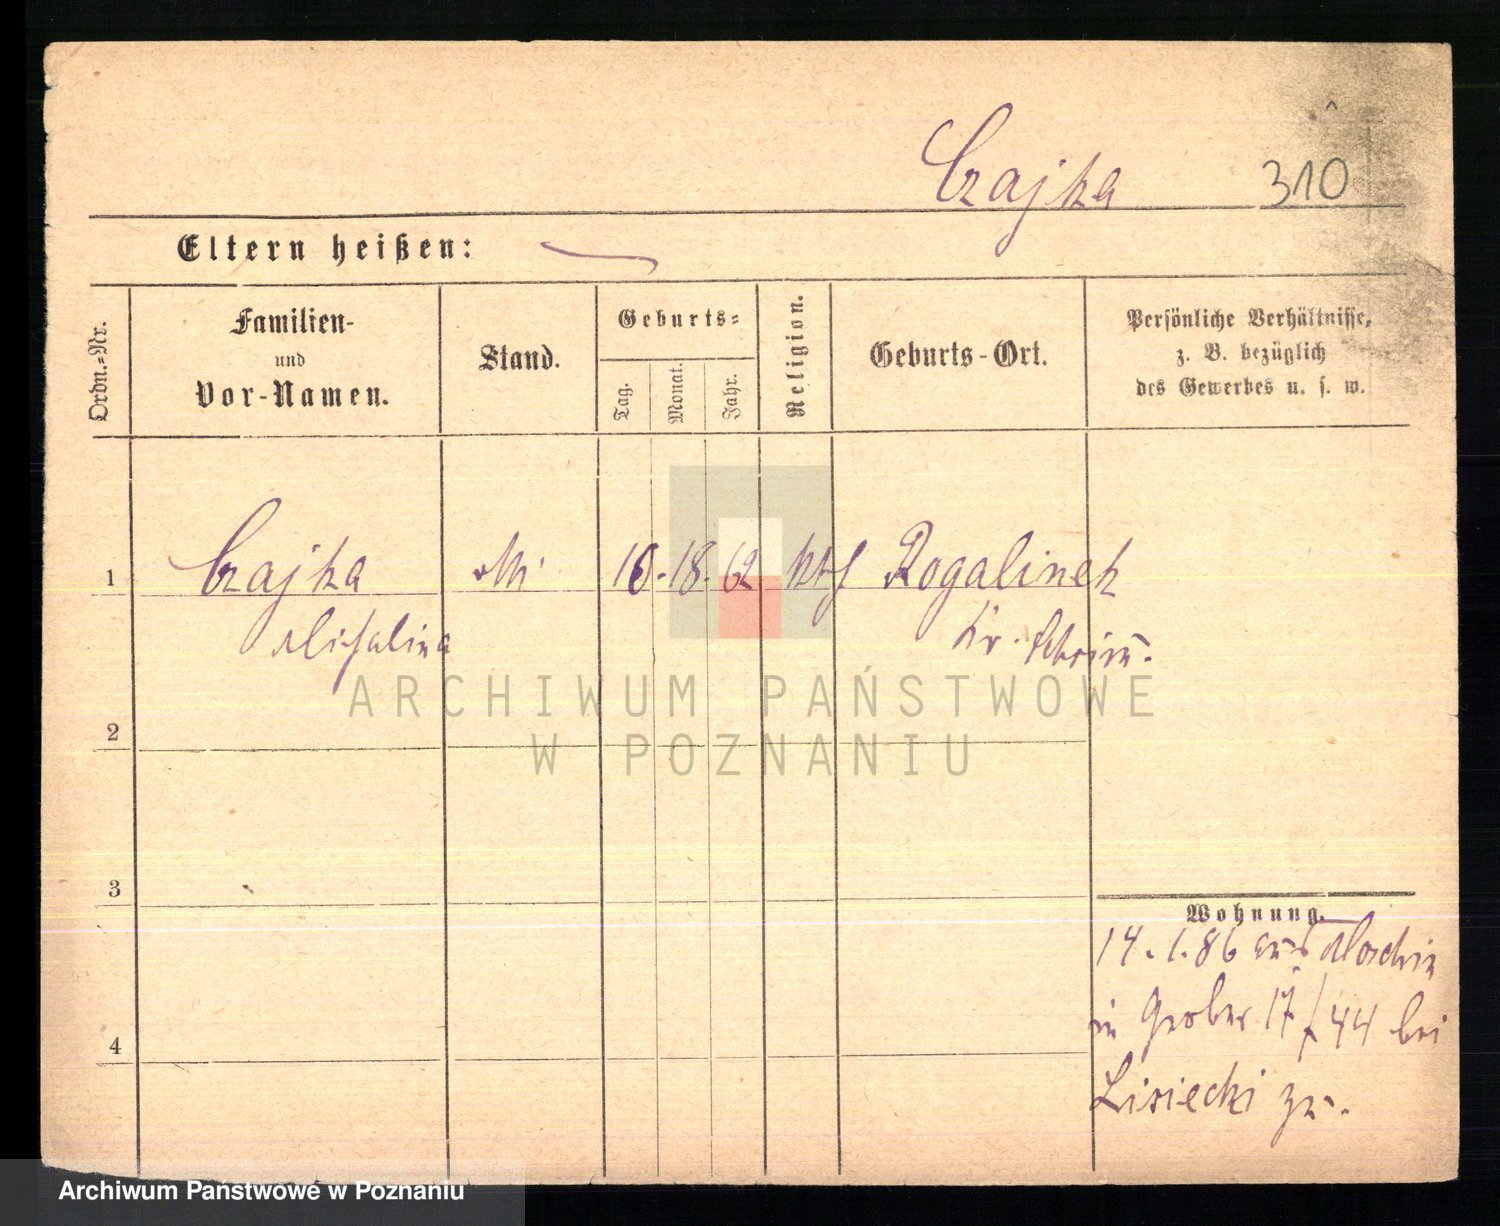 Czajka 310
Eltern heißen:
Ordn.-Nr.
Familien-
und
Vor-Namen.
Stand.
Geburts-
Tag.
Monat.
Jahr.
Religion.
Geburts-Ort.
Persönliche Verhältnisse,
z. B. bezüglich
des Gewerbes u. s. w.
1 Czajka 16. 18. 62 kth Rogalinek
Kr. Schrim.
2
3
4
Wohnung.
14. 1. 86 aus Moschin
in Graben 17/44 bei
Lisiecki zu.
ARCHIWUM PAŃSTWOWE
W POZNANIU
Archiwum Państwowe w Poznaniu